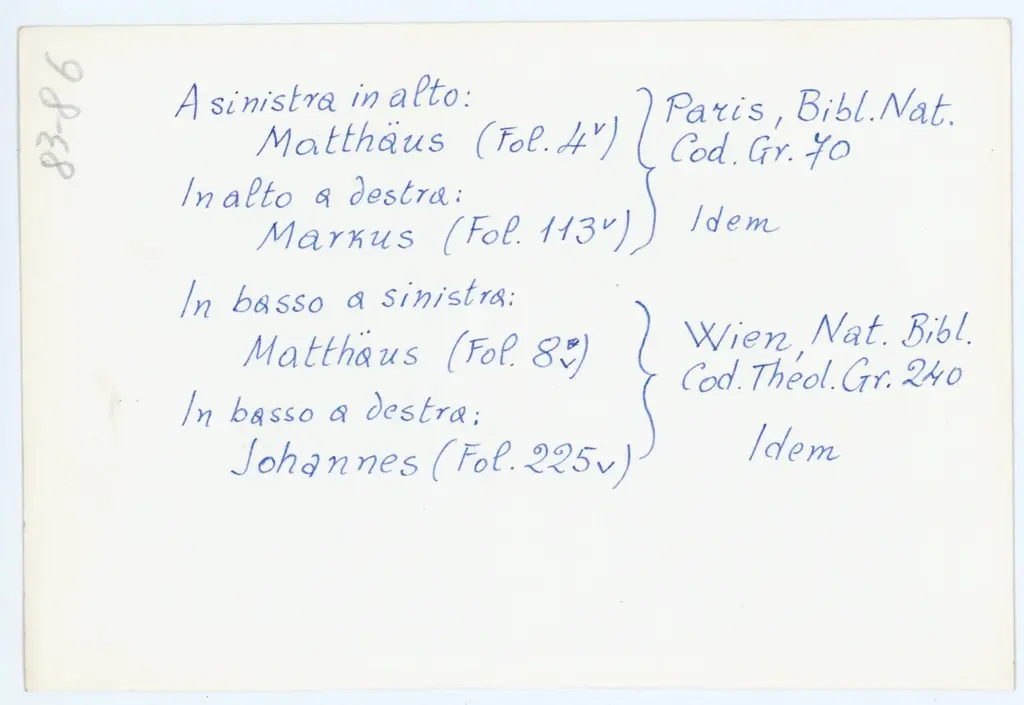 83-86
A sinistra in alto:
Matthäus (Fol. 4v)
In alto a destra:
Markus (Fol. 113v)
Paris, Bibl. Nat.
Cod. Gr. 70
Idem
In basso a sinistra:
Matthäus (Fol. 8v)
In basso a destra:
Johannes (Fol. 225v)
Wien, Nat. Bibl.
Cod. Theol. Gr. 240
Idem